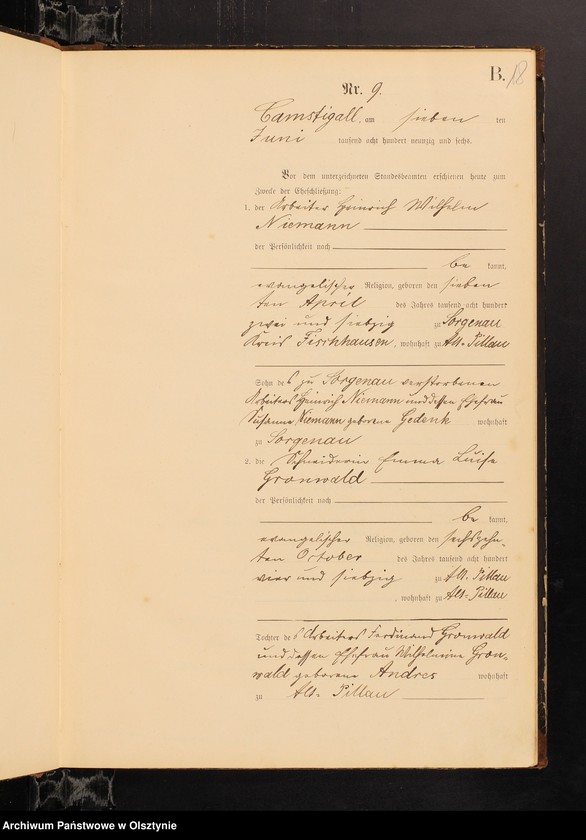 B. 18
Nr. 9.
Camstigall, am sieben ten
Juni tausend acht hundert neunzig und sechs.
Vor dem unterzeichneten Standesbeamten erschienen heute zum
Zwecke der Eheschließung:
1. der Arbeiter Heinrich Wilhelm
Niemann
der Persönlichkeit nach
be kannt,
evangelischer Religion, geboren den sieben
ten April des Jahres tausend acht hundert
zwei und siebzig zu Sorgenau
Kreis Fischhausen, wohnhaft zu Alt-Pillau
Sohn des zu Sorgenau verstorbenen
Arbeiters Heinrich Niemann und dessen Ehefrau
Susanna Niemann geborene Gedenk wohnhaft
zu Sorgenau
2. die Schneiderin Emma Luise
Gronwald
der Persönlichkeit nach
be kannt,
evangelischer Religion, geboren den sechszehn-
ten October des Jahres tausend acht hundert
vier und siebzig zu Alt-Pillau
, wohnhaft zu Alt-Pillau
Tochter des Arbeiters Ferdinand Gronwald
und dessen Ehefrau Wilhelmine Gron-
wald geborene Andres wohnhaft
zu Alt-Pillau
Archiwum Państwowe w Olsztynie